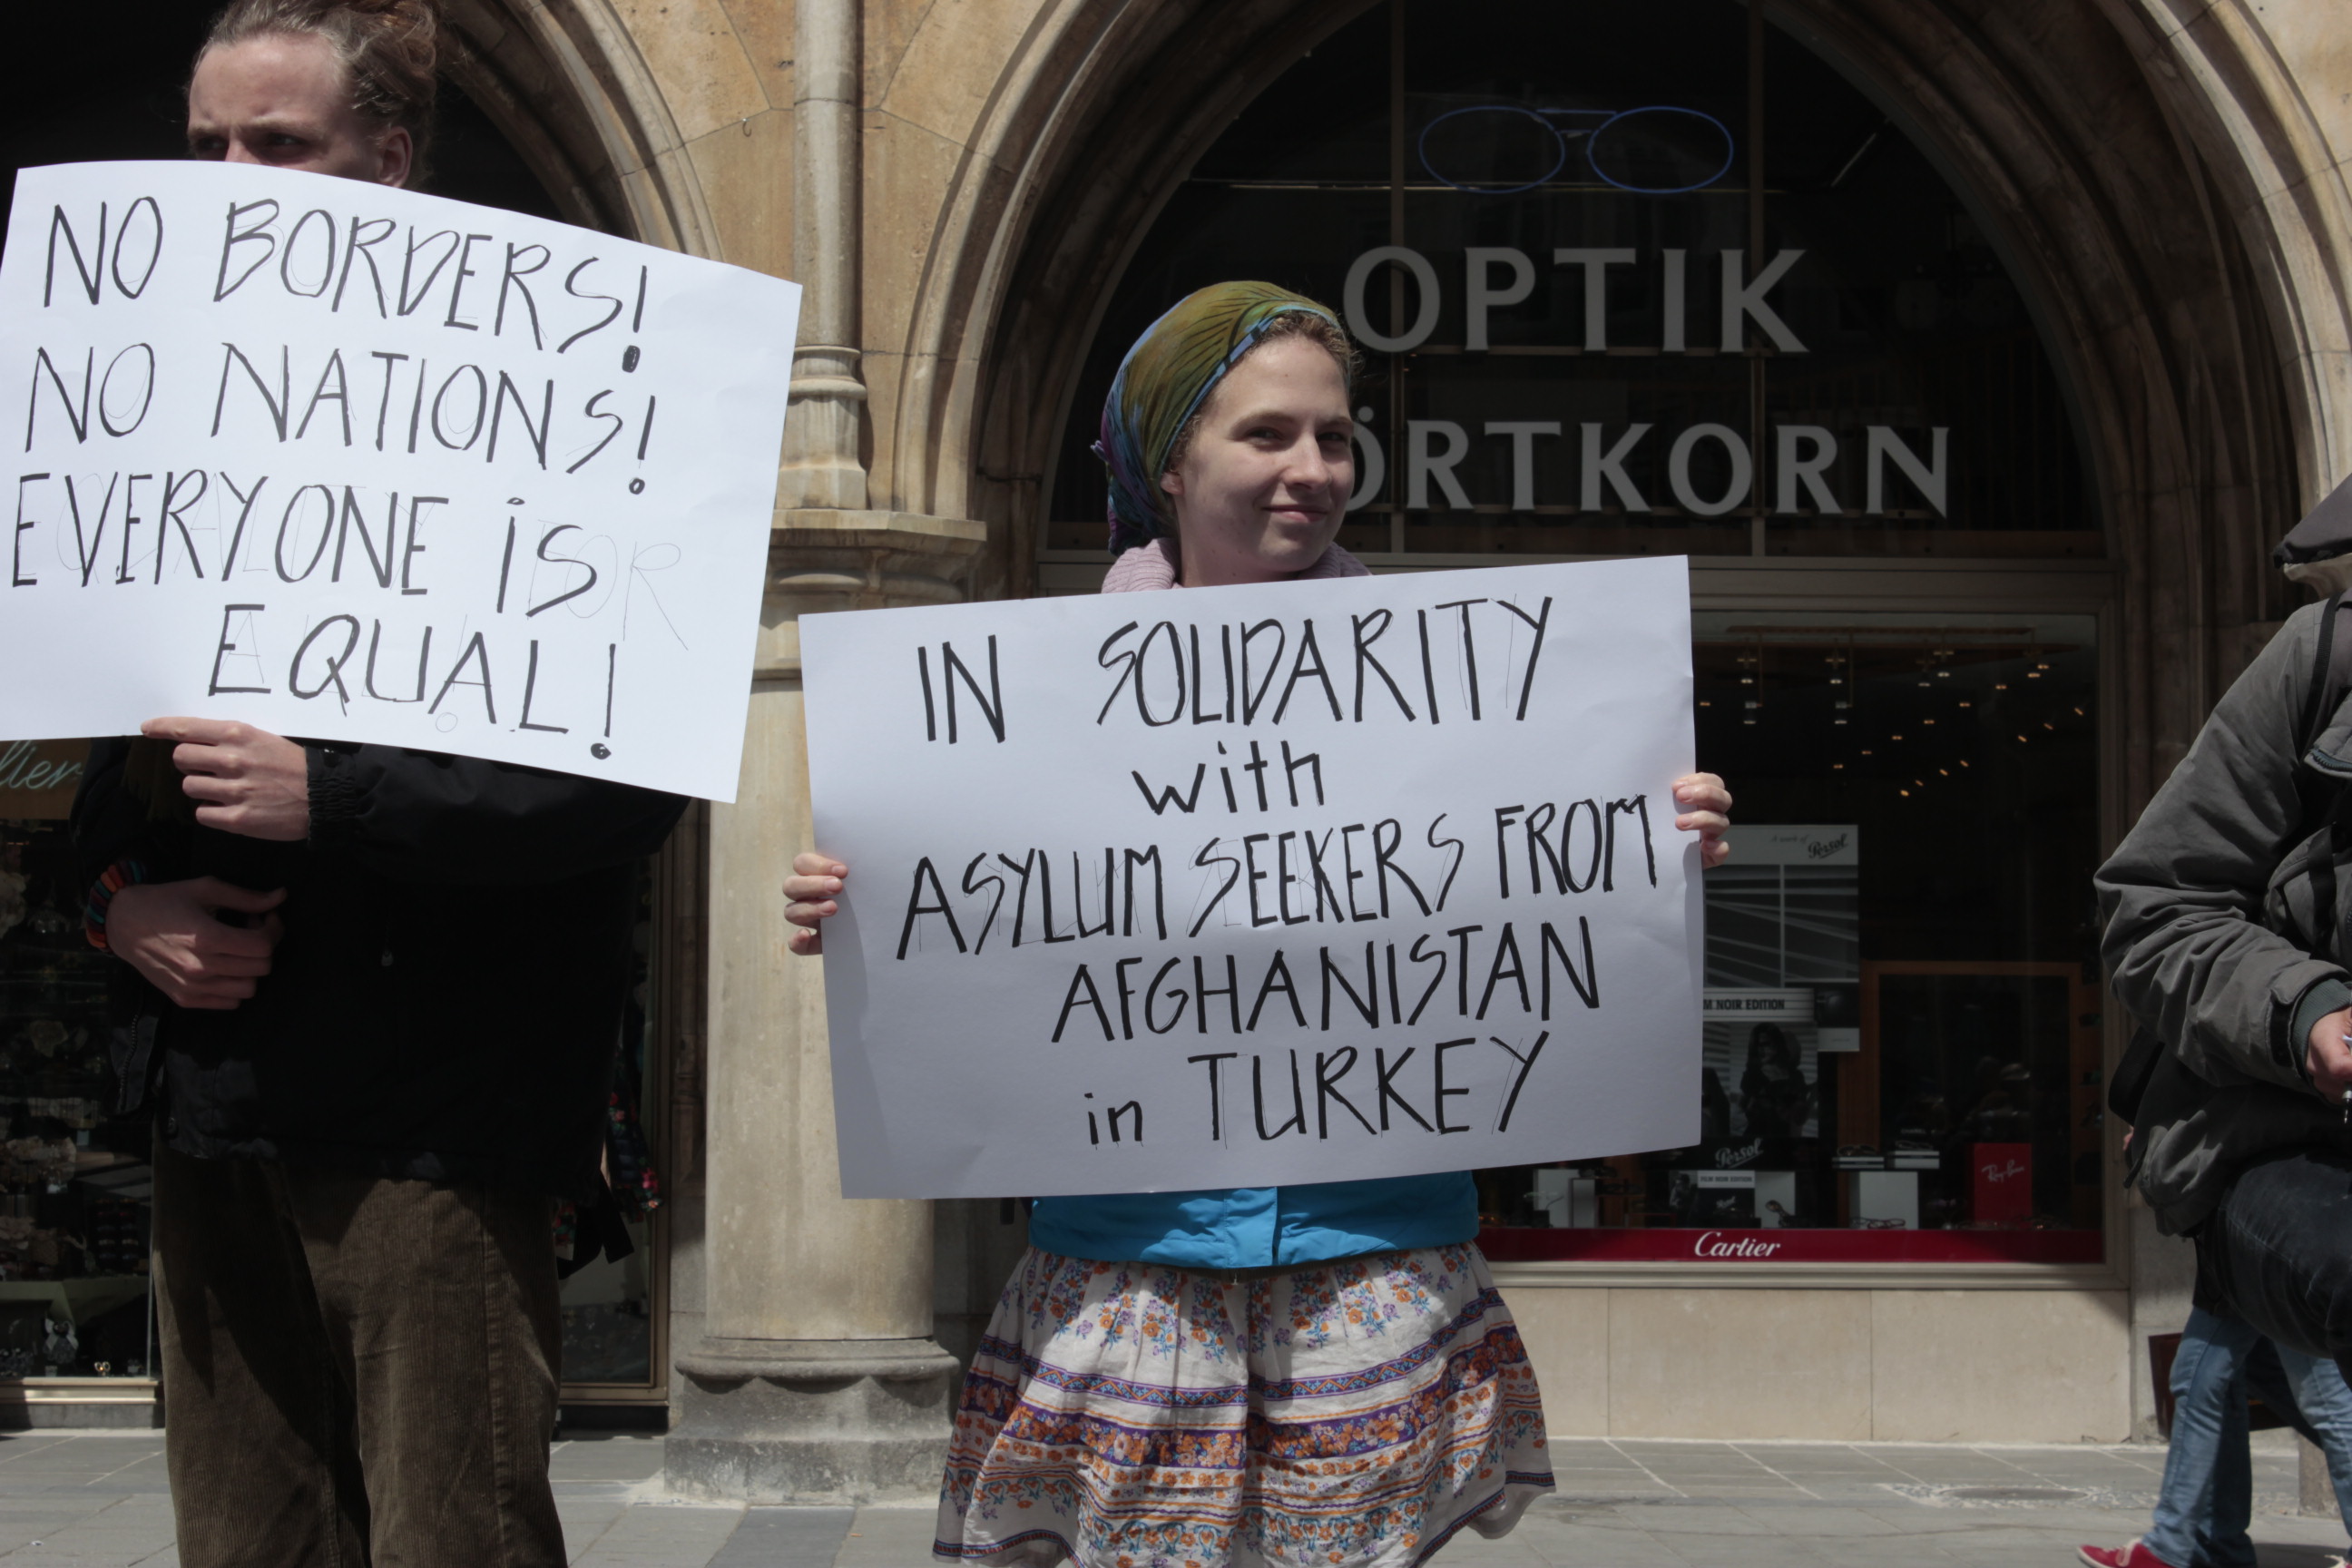 NO BORDERS!
NO NATIONS!
EVERYONE IS
EQUAL!
OPTIK
ÖRTKORN
IN SOLIDARITY
with
ASYLUM SEEKERS FROM
AFGHANISTAN
in TURKEY
Persol
M NOIR EDITION
Persol
FILM NOIR EDITION
Ray-Ban
Cartier